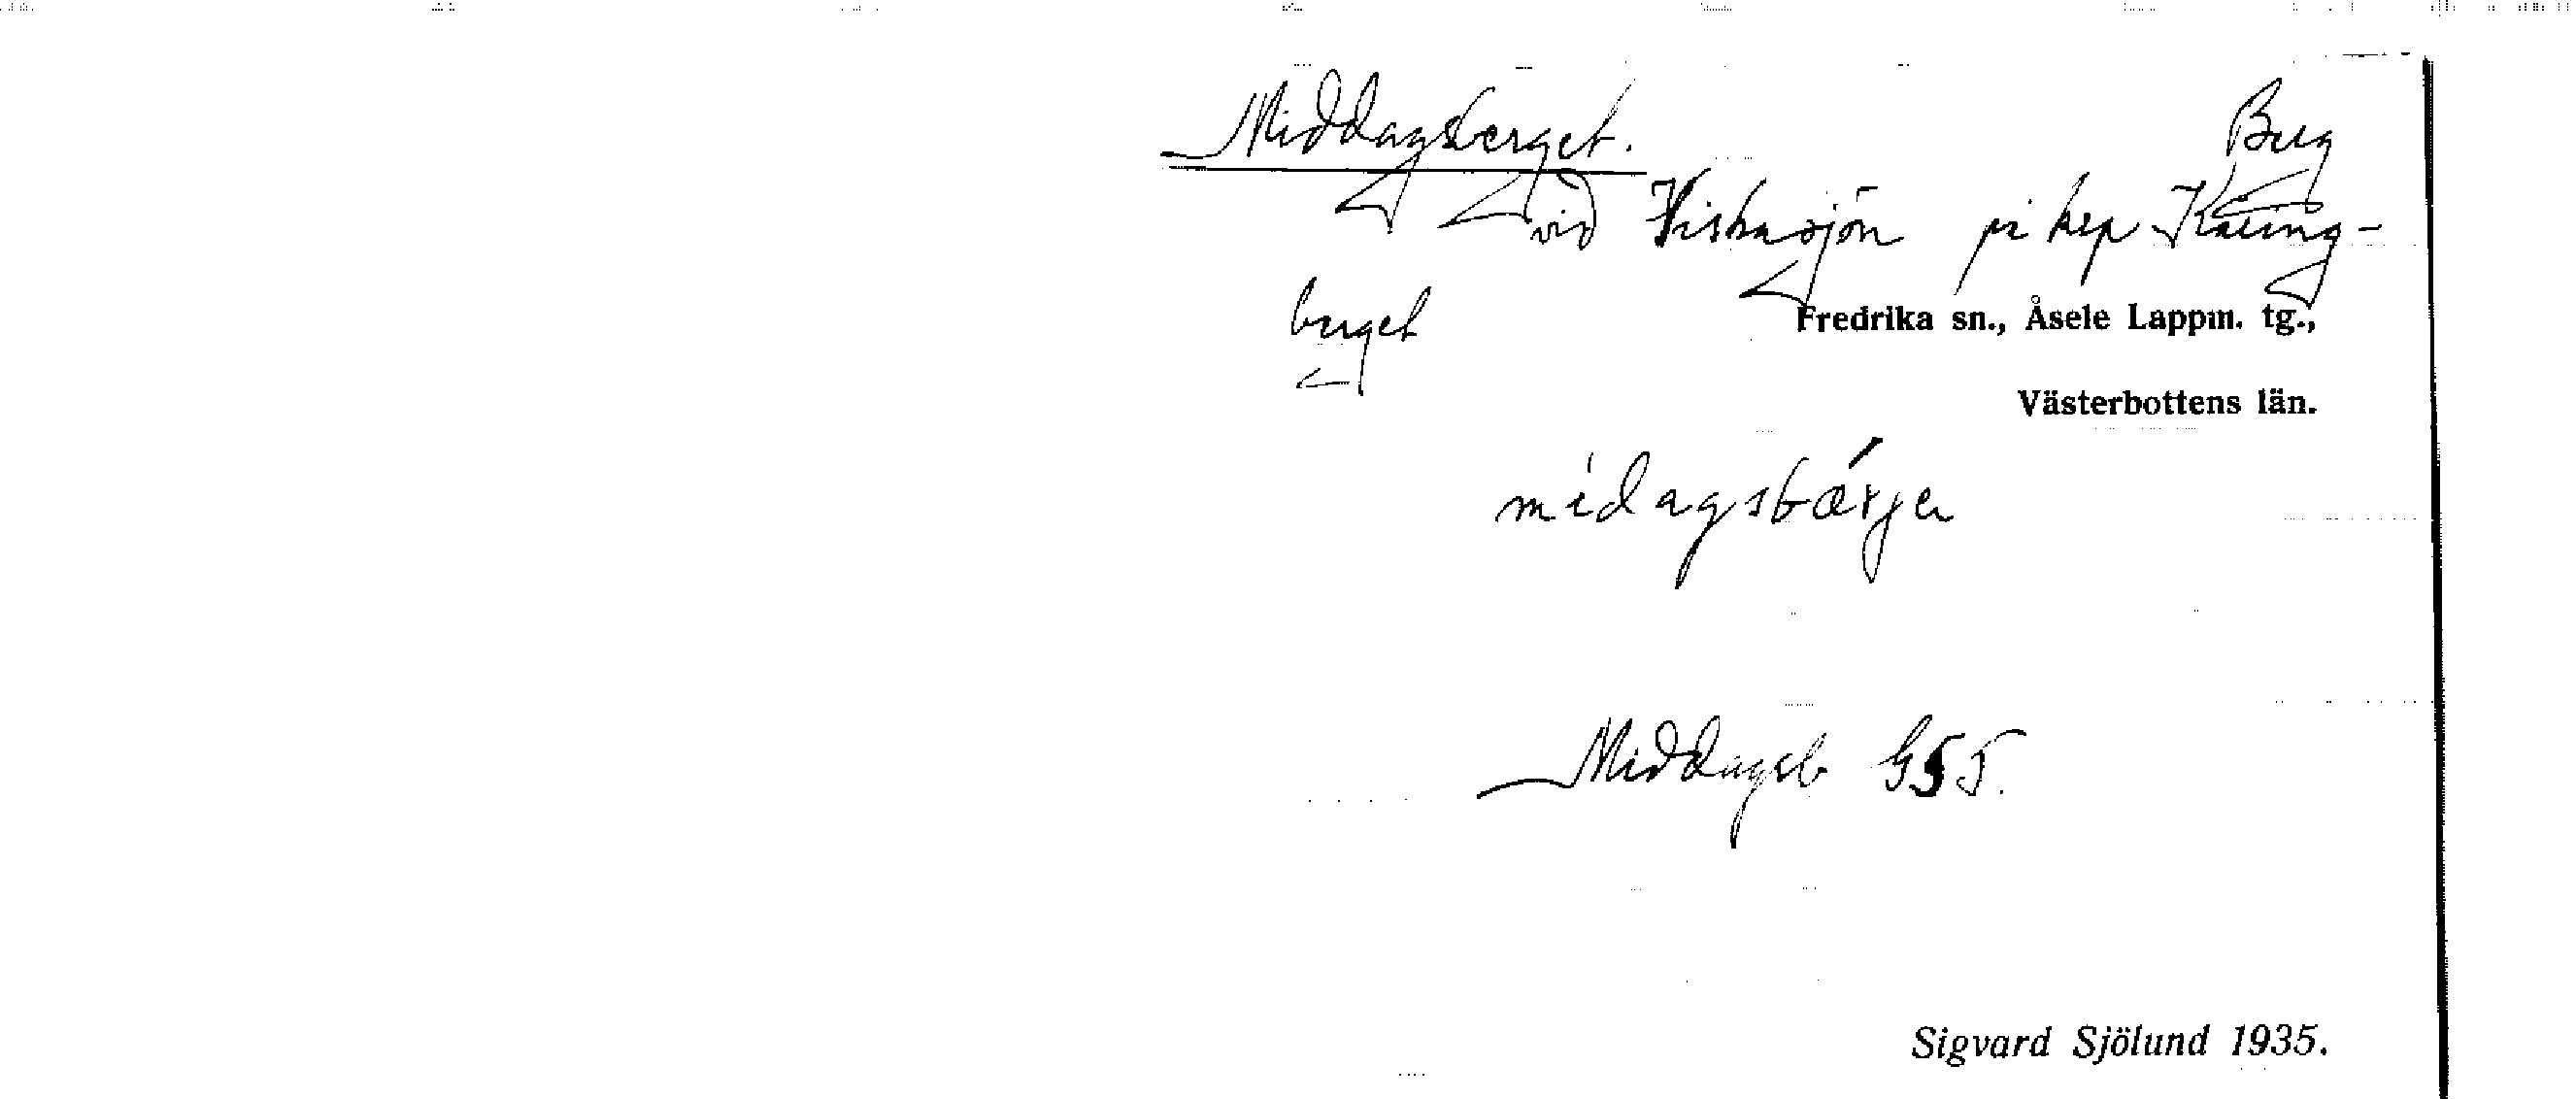 Middagsberget. Berg
vid Viskasjön på hep Käring-
berget
Fredrika sn., Åsele Lappm. tg.,
Västerbottens län.
mídagsbǽrjen
Middagsb G55.
Sigvard Sjölund 1935.